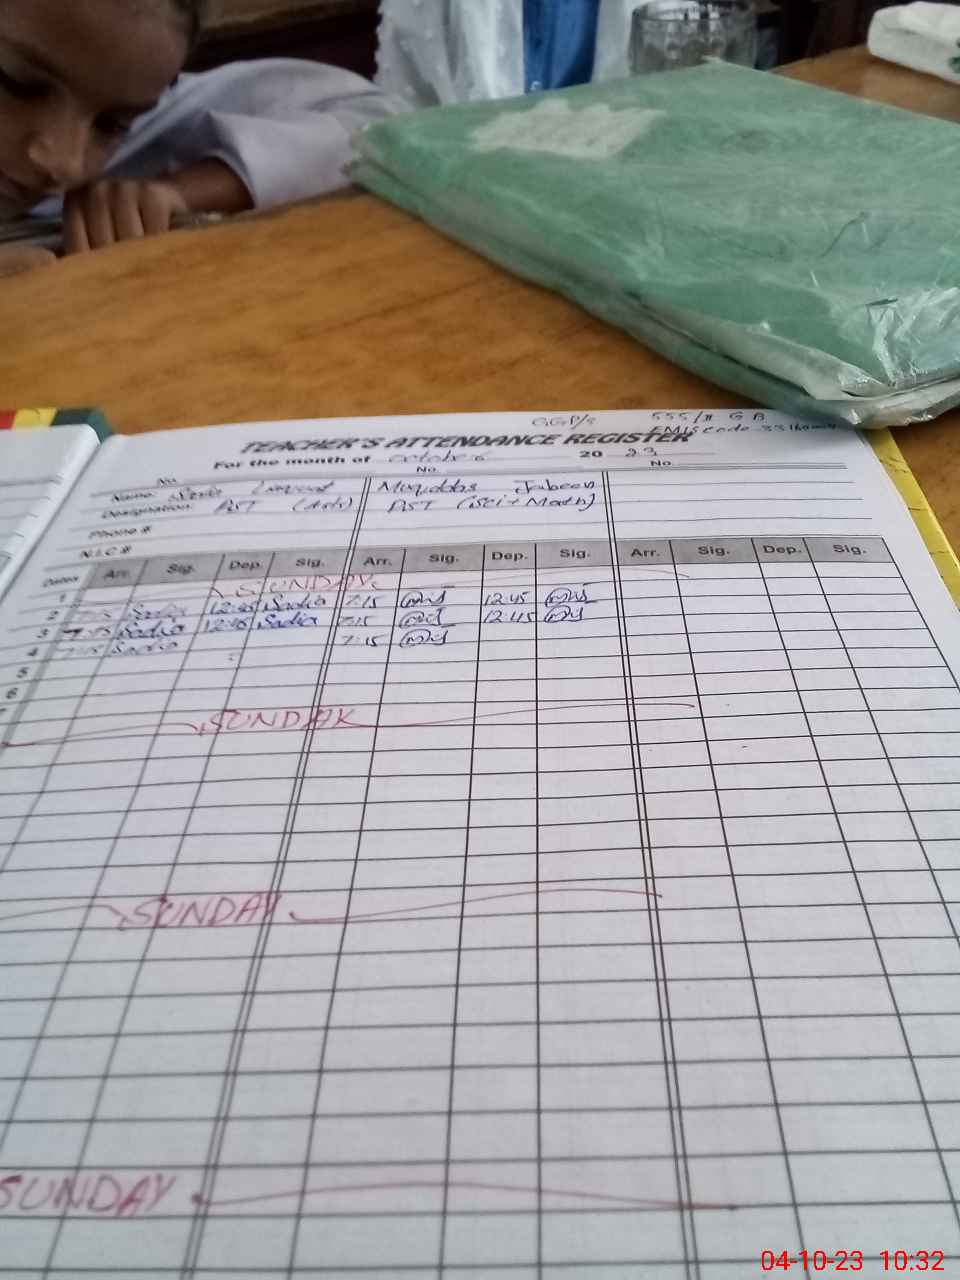 GGP/s 555/II GB
EMIS code
TEACHER'S ATTENDANCE REGISTER
For the month of october 20 23
No. No. No.
Name: Sadia Liaquat Muqaddas Jabeen
Designation: PST (Arts) PST (Sci+Math)
Phone #
N.I.C #
Dates Arr. Sig. Dep. Sig. Arr. Sig. Dep. Sig. Arr. Sig. Dep. Sig.
1 SUNDAY
2 Sadia 12:45 Sadia 7:15 12:45
3 7:15 Sadia 12:45 Sadia 7:15 12:45
4 7:15 Sadia 7:15
5
6
SUNDAY
SUNDAY
SUNDAY
04-10-23 10:32